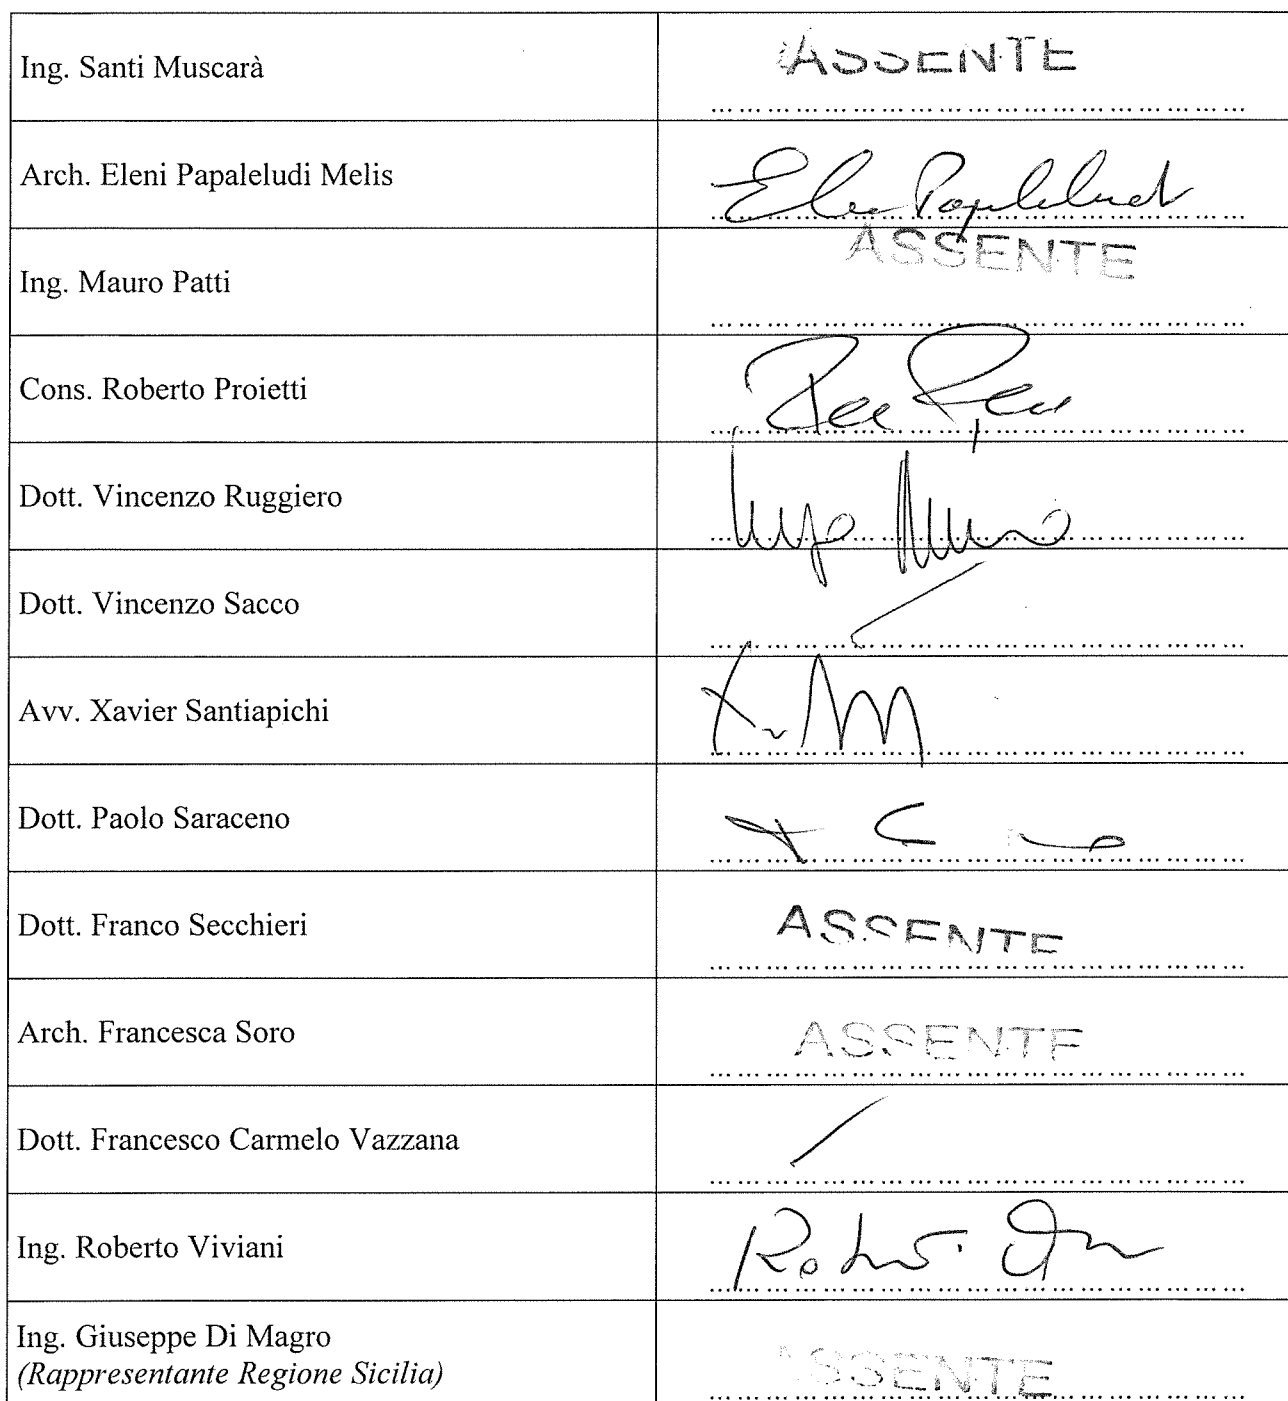 Ing. Santi Muscarà
ASSENTE
Arch. Eleni Papaleludi Melis
Ing. Mauro Patti
ASSENTE
Cons. Roberto Proietti
Dott. Vincenzo Ruggiero
Dott. Vincenzo Sacco
Avv. Xavier Santiapichi
Dott. Paolo Saraceno
Dott. Franco Secchieri
ASSENTE
Arch. Francesca Soro
ASSENTE
Dott. Francesco Carmelo Vazzana
Ing. Roberto Viviani
Ing. Giuseppe Di Magro
(Rappresentante Regione Sicilia)
ASSENTE